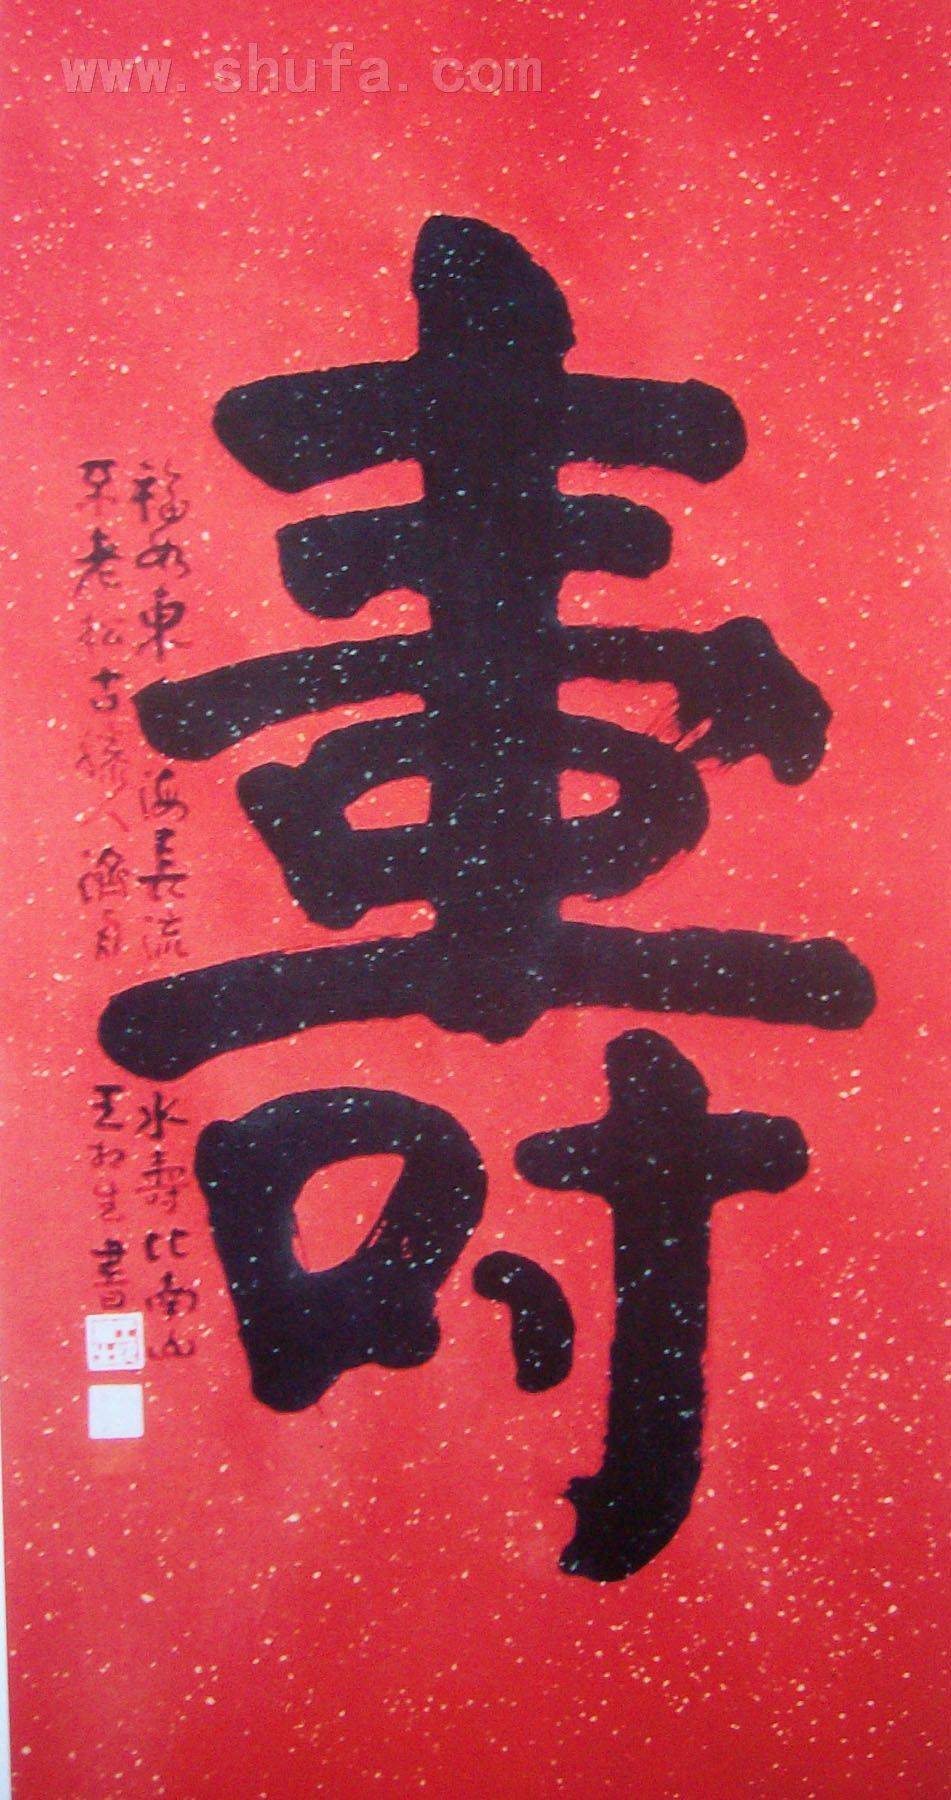 www.shufa.com
壽
福如東海長流水壽比南山
不老松古滕人